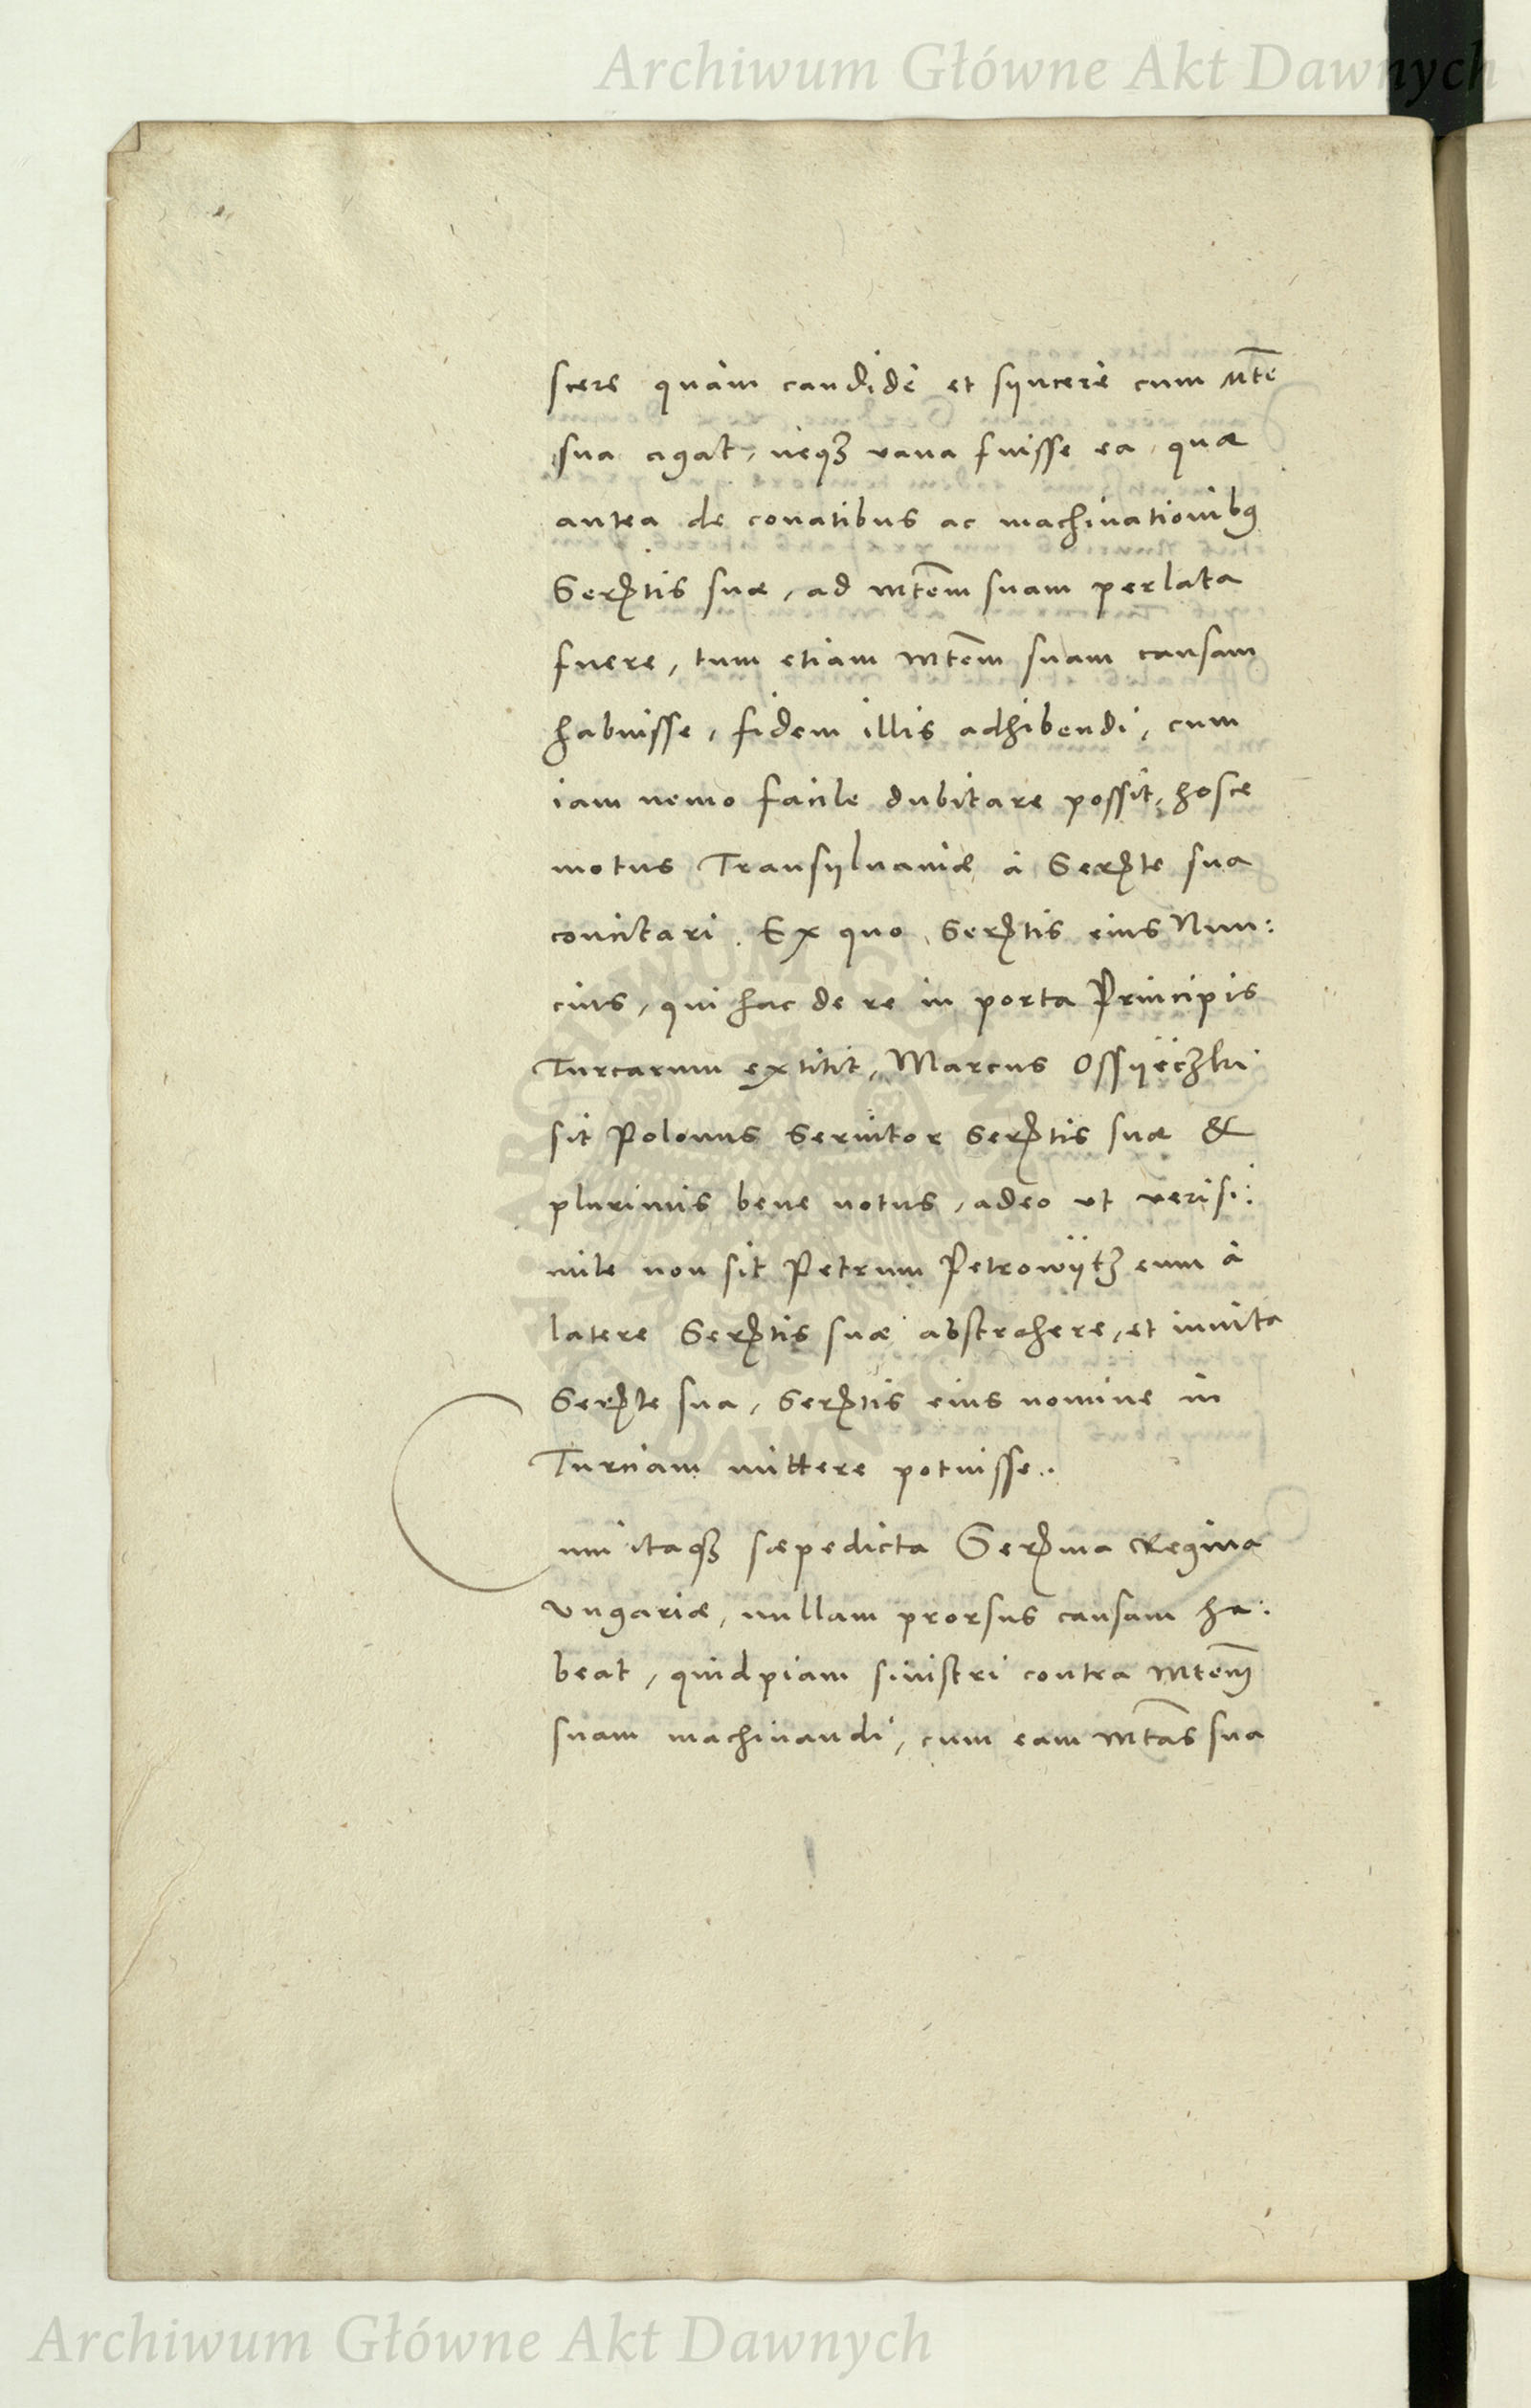 Archiwum Główne Akt Dawnych
scere quàm candidè et syncerè cum Mte
sua agat, neqꝫ vana fuisse ea, quæ
antea de conatibus ac machinationibꝰ
Serᵐtis suæ, ad Mtem suam perlata
fuere, tum etiam Mtem suam causam
habuisse, fidem illis adhibendi, cum
iam nemo facile dubitare possit, hosce
motus Transylvaniæ à Serᵐte sua
concitari. Ex quo Serᵐtis eius Nun:
cius, qui hac de re in porta Principis
Turcarum extitit, Marcus Ossyëczki
sit Polonus Servitor Serᵐtis suæ &
plurimis bene notus, adeo ut verisi:
mile non sit Petrum Petrowÿtz eum à
latere Serᵐtis suæ abstrahere, et invita
Serᵐte sua, Serᵐtis eius nomine in
Turciam mittere potuisse.
Cum itaqꝫ sæpedicta Serᵐma Regina
Vngariæ, nullam prorsus causam ha:
beat, quidpiam sinistri contra Mtem
suam machinandi, cum eam Mtas sua
ARCHIWUM GŁÓWNE AKT DAWNYCH
Archiwum Główne Akt Dawnych